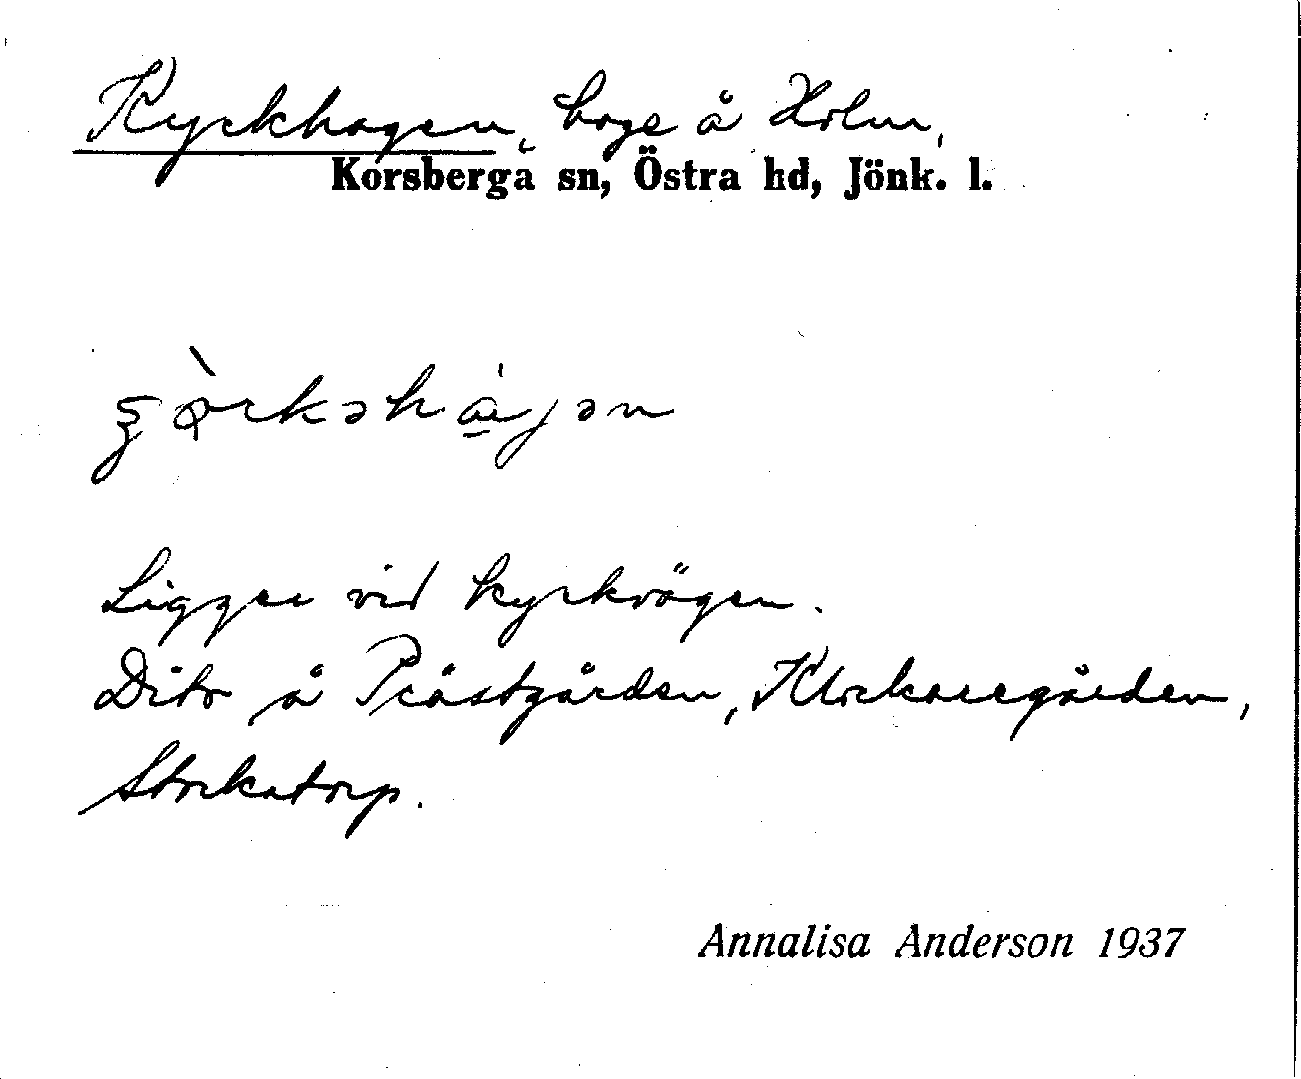 Kyrkhagen, hage å Holm,
Korsberga sn, Östra hd, Jönk. l.
Ligger vid kyrkvägen.
Dito å Prästgården, Klockaregården,
Stockatorp.
Annalisa Anderson 1937